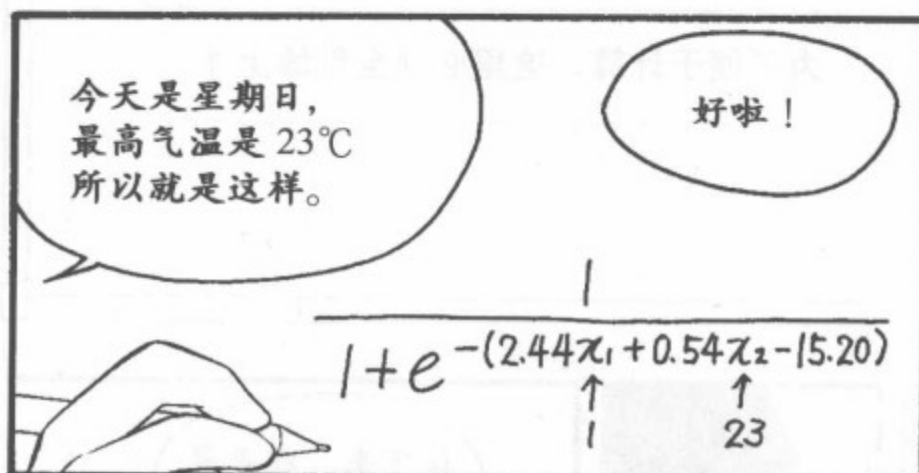 今天是星期日，
最高气温是 23℃
所以就是这样。
好啦！
1
1+e^-(2.44x₁+0.54x₂-15.20)
↑ ↑
1 23